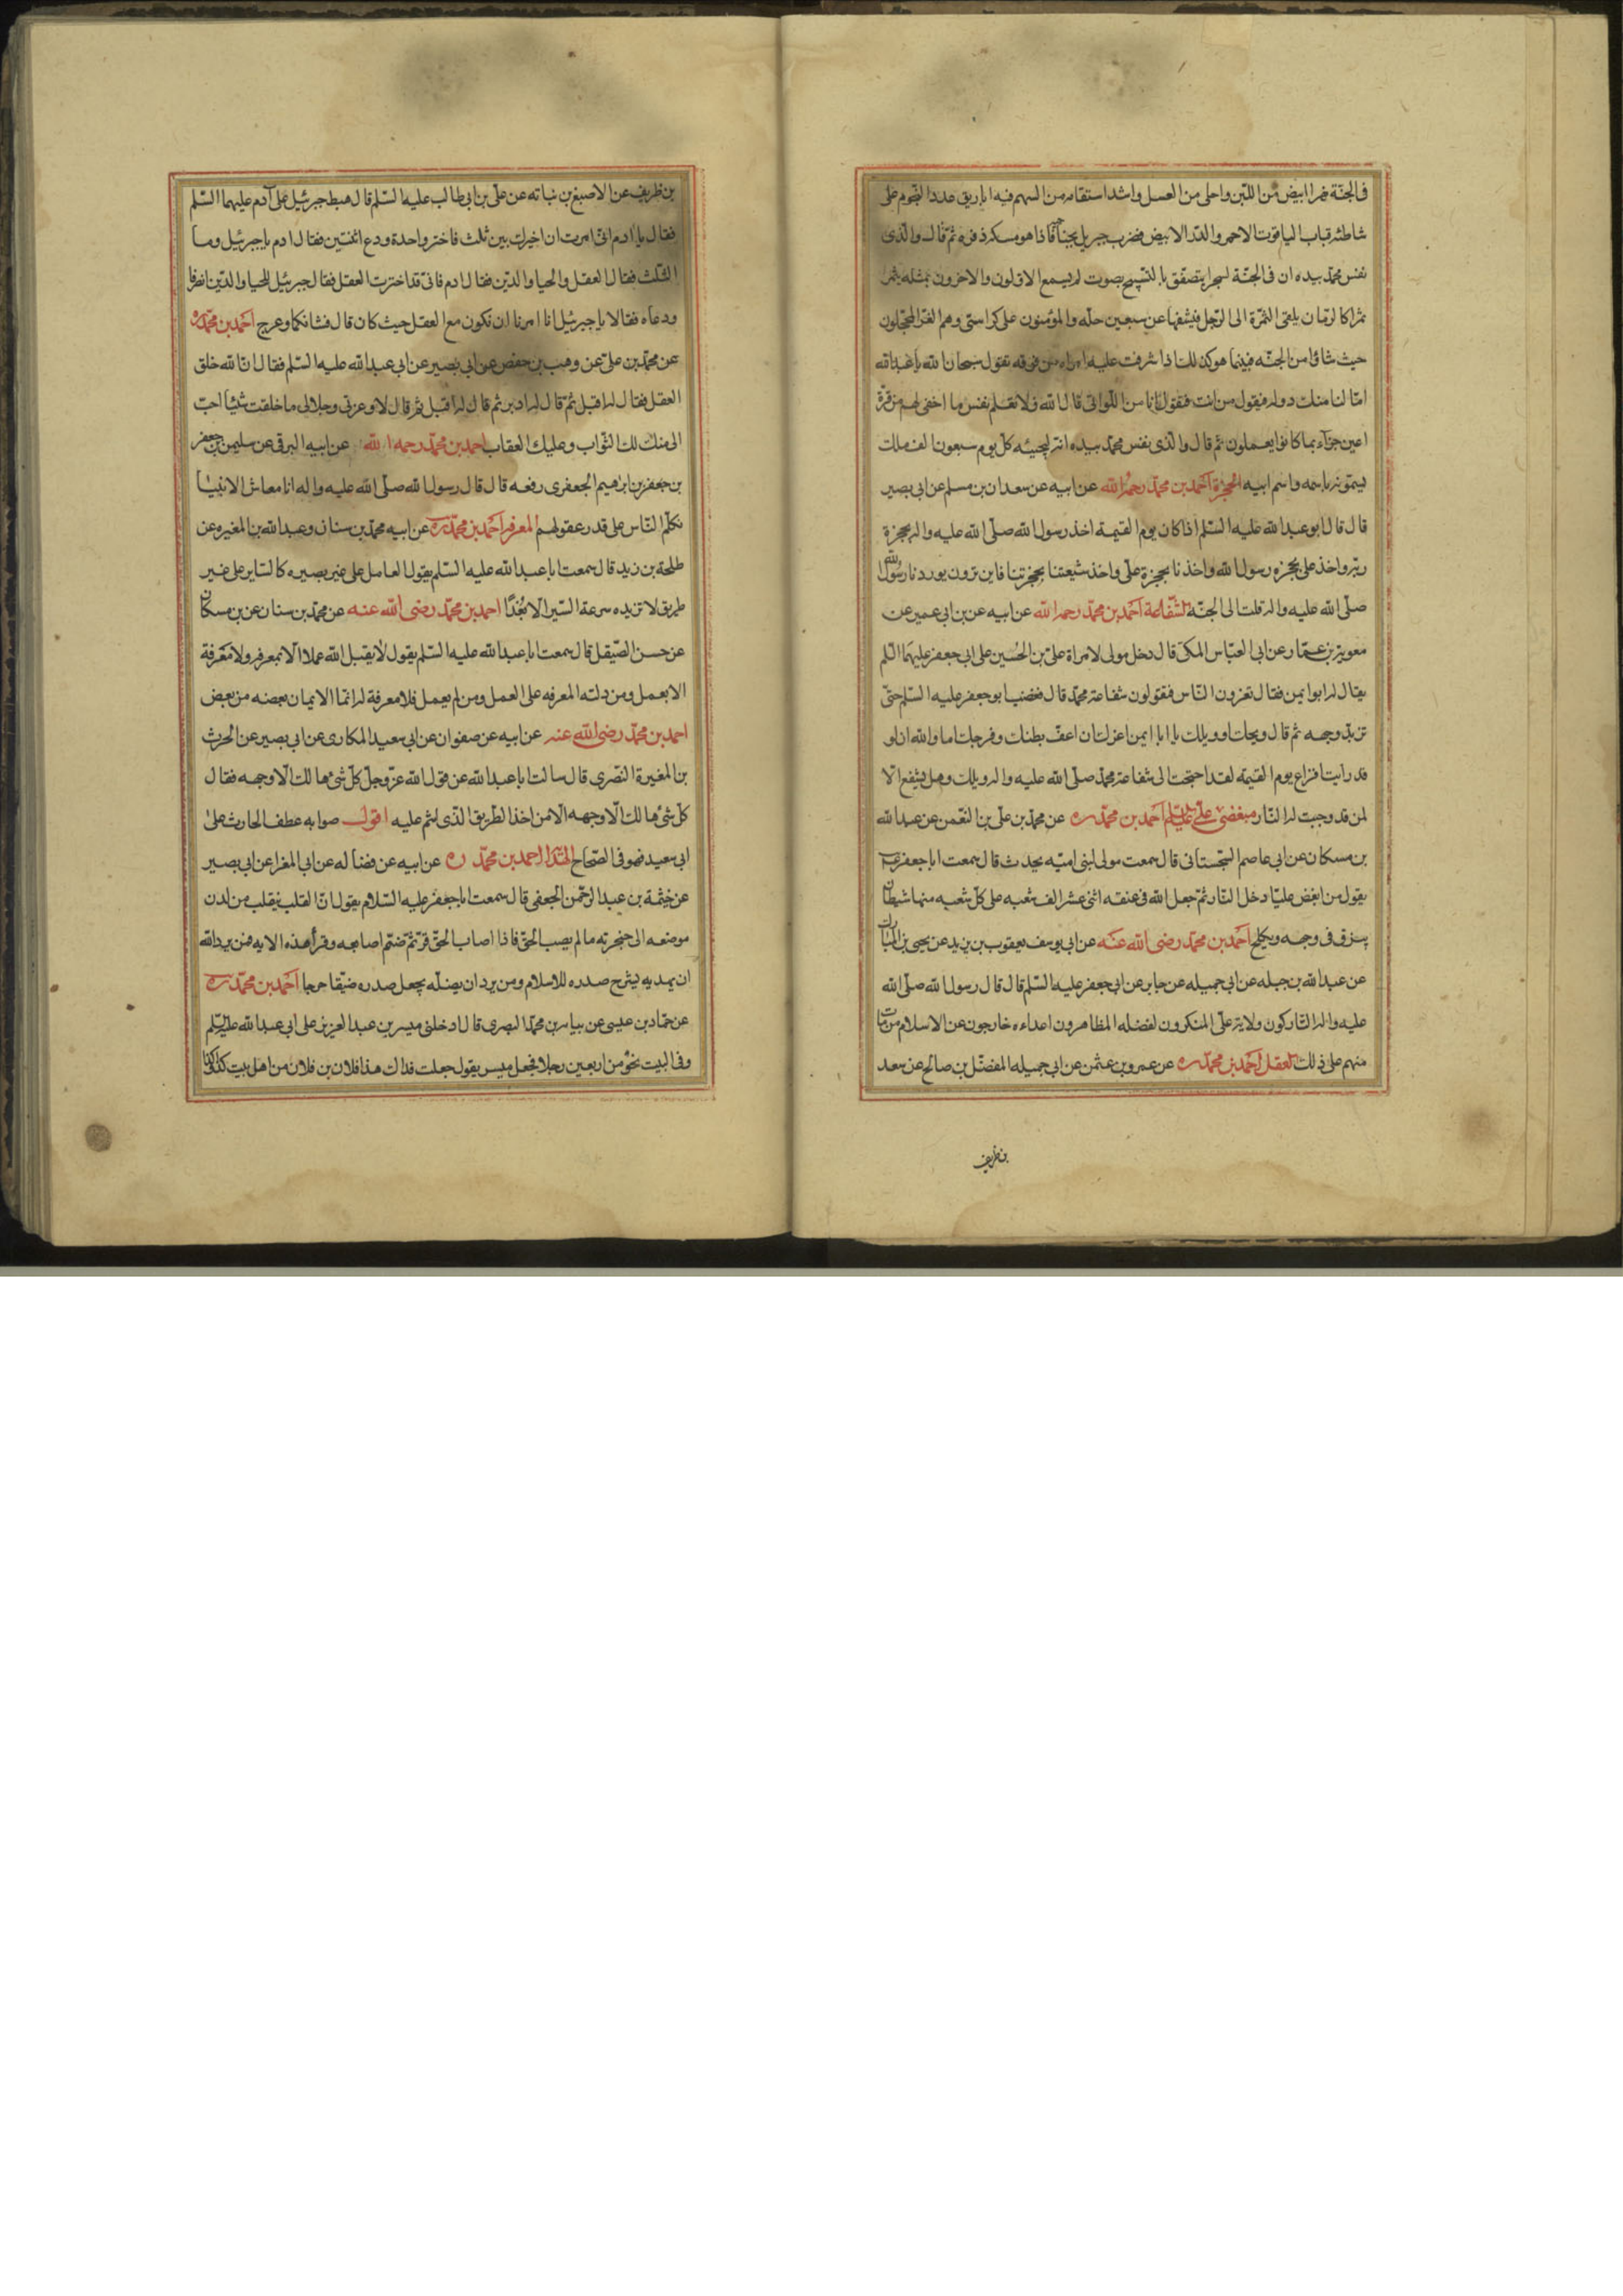 فى الجنّة نهرا ابيض من اللبن واحلى من العسل واشد استقامه من السهم فيه اباريق عدد النجوم على
شاطئه قباب الياقوت الاحمر والدّر الابيض فضرب جبريل بجناحه فاذا هو مسكه ذفره ثمّ قال والّذى
نفس محمّد بيده ان فى الجنّة لشجرا يتصفّق بالتّسبيح بصوت لم يسمع الاوّلون والاخرون بمثله يثمر
ثمرا كالرّمان يلقى الثمرة الى الرّجل فيشقها عن سبعين حلّه والمؤمنون على كراسىّ وهم الغرّ المحجّلون
حيث شاؤا من الجنّه فبينما هو كذلك اذا شرفت عليه امراه من فوقه تقول سبحان الله يا عبد الله
امّا لنا منك دوله فيقول من انت فتقول انا من اللّواتى قال الله ولا تعلم نفس ما اخفى لهم من قرّة
اعين جزآء بما كانوا يعملون ثمّ قال والّذى نفس محمّد بيده انه ليجيئه كلّ يوم سبعون الف ملك
يسمّونه باسمه واسم ابيه الحجزة احمد بن محمّد رحمه الله عن ابيه عن سعدان بن مسلم عن ابى بصير
قال قال ابو عبد الله عليه السّلم اذا كان يوم القيمة اخذ رسول الله صلّى الله عليه واله بحجزة
ربّه واخذ علىّ بحجزه رسول الله واخذنا بحجزة علىّ واخذ شيعتنا بحجزتنا فاين ترون يوردنا رسول الله
صلّى الله عليه واله قلت الى الجنّة الشّفاعة احمد بن محمّد رحمه الله عن ابيه عن بن ابى عمير عن
معوية بن عمّار عن ابى العبّاس المكىّ قال دخل مولى لامراة علىّ بن الحسين على ابى جعفر عليهما السّلم
يقال له ابو ايمن فقال تغرون النّاس فتقولون شفاعة محمّد قال فغضب ابو جعفر عليه السّلم حتّى
تربّد وجهه ثم قال ويحك او ويلك يا ابا ايمن اغرّك ان اعفّ بطنك وفرجك اما والله ان لو
قد رايت افزاع يوم القيمه لقد احتجت الى شفاعة محمّد صلّى الله عليه واله ويلك وهل يشفع الّا
لمن قد وجبت له النّار مبغضى علىّ عليه السّلم احمد بن محمّد ره عن محمّد بن علىّ بن النّعمن عن عبد الله
بن مسكان عن ابى عاصم السّجستانى قال سمعت مولى لبنى اميّه يحدث قال سمعت ابا جعفر ع
يقول من ابغض عليّا دخل النّار ثمّ جعل الله فى عنقه اثنى عشر الف شعبه على كلّ شعبه منها شيطان
يبزق فى وجهه ويكلح احمد بن محمّد رضى الله عنه عن ابى يوسف يعقوب بن يزيد عن يحيى بن المبارك
عن عبد الله بن جبله عن ابى جميله عن جابر عن ابى جعفر عليه السّلم قال قال رسول الله صلّى الله
عليه واله التّاركون ولاية علىّ المنكرون لفضله المظاهرون اعداءه خارجون عن الاسلام من مات
منهم على ذلك العقل احمد بن محمّد ره عن عمرو بن عثمن عن ابى جميله المفضّل بن صالح عن سعد
بن ظريف
بن ظريف عن الاصبغ بن نباته عن علىّ بن ابى طالب عليه السّلم قال هبط جبرئيل على آدم عليهما السّلم
فقال يا ادم انّى امرت ان اخيرك بين ثلث فاختر واحدة ودع اثنتين فقال ادم يا جبرئيل وما
الثّلث فقال العقل والحيا والدّين فقال ادم فانّى قد اخترت العقل فقال جبرئيل للحيا والدّين انصرفا
ودعاه فقالا يا جبرئيل انا امرنا ان نكون مع العقل حيث كان قال فشانكما وعرج احمد بن محمّد ره
عن محمّد بن علىّ عن وهب بن حفص عن ابى بصير عن ابى عبد الله عليه السّلم فقال ان الله خلق
العقل فقال له اقبل ثمّ قال له ادبر ثم قال له اقبل ثم قال لا وعزتى وجلالى ما خلقت شيئا احبّ
الى منك لك الثّواب وعليك العقاب احمد بن محمّد رحمه الله عن ابيه البرقى عن سليمن بن جعفر
بن جعفر بن ابرهيم الجعفرى رفعه قال قال رسول الله صلّى الله عليه واله انا معاش الانبيا
نكلّم النّاس على قدر عقولهم المعرفه احمد بن محمّد ره عن ابيه محمّد بن سنان وعبد الله بن المغيره عن
طلحة بن زيد قال سمعت ابا عبد الله عليه السّلم يقول العامل على غير بصيره كالسّاير على غير
طريق لا تزيده سرعة السّير الّا بُعْدًا احمد بن محمّد رضى الله عنه عن محمّد بن سنان عن بن مسكان
عن حسن الصّيقل قال سمعت ابا عبد الله عليه السّلم يقول لا يقبل الله عملا الّا بمعرفه ولا معرفة
الا بعمل ومن دلته المعرفه على العمل ومن لم يعمل فلا معرفة له انّما الايمان بعضه من بعض
احمد بن محمّد رضى الله عنه عن ابيه عن صفوان عن ابى سعيد المكارى عن ابى بصير عن الحرث
بن المغيرة النّصرى قال سالت ابا عبد الله عن قول الله عزّ وجلّ كلّ شئ هالك الّا وجهه فقال
كلّ شئ هالك الّا وجهه الّا من اخذ الطّريق الّذى انتم عليه اقول صوابه عطف الحارث على
ابى سعيد فهو فى الصّحاح الهدا احمد بن محمّد ره عن ابيه عن فضاله عن ابى المغرا عن ابى بصير
عن خيثمة بن عبد الرّحمن الجعفى قال سمعت ابا جعفر عليه السّلام يقول انّ القلب يتقلب من لدن
موضعه الى حنجرته ما لم يصب الحقّ فاذا اصاب الحقّ قرّ ثمّ ضمّ اصابعه وقرأ هذه الايه فمن يرد الله
ان يهديه يشرح صدره للاسلام ومن يرد ان يضلّه يجعل صدره ضيّقا حرجا احمد بن محمّد ره
عن حمّاد بن عيسى عن بياس بن محمّد البصرى قال ادخلنى ميسر بن عبد العزيز على ابى عبد الله عليه السّلم
وفى البيت نحو من اربعين رجلا فجعل ميسر يقول جعلت فداك هذا فلان بن فلان من اهل بيت كذا